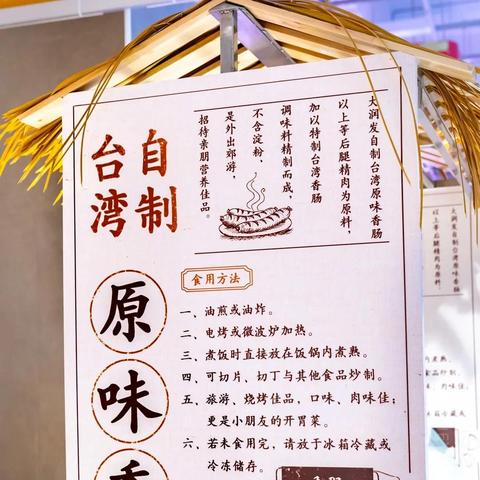 自制
台湾
大润发自制台湾原味香肠
以上等后腿精肉为原料，
加以特制台湾香肠
调味料精制而成，
不含淀粉，
是外出郊游，
招待亲朋营养佳品。
原
味
食用方法
一、油煎或油炸。
二、电烤或微波炉加热。
三、煮饭时直接放在饭锅内煮熟。
四、可切片、切丁与其他食品炒制。
五、旅游、烧烤佳品，口味、肉味佳；
更是小朋友的开胃菜。
六、若未食用完，请放于冰箱冷藏或
冷冻储存。
大润发自制台湾原味香肠
以上等后腿精肉为原料，
内煮熟。
食品炒制。
味、肉味佳；